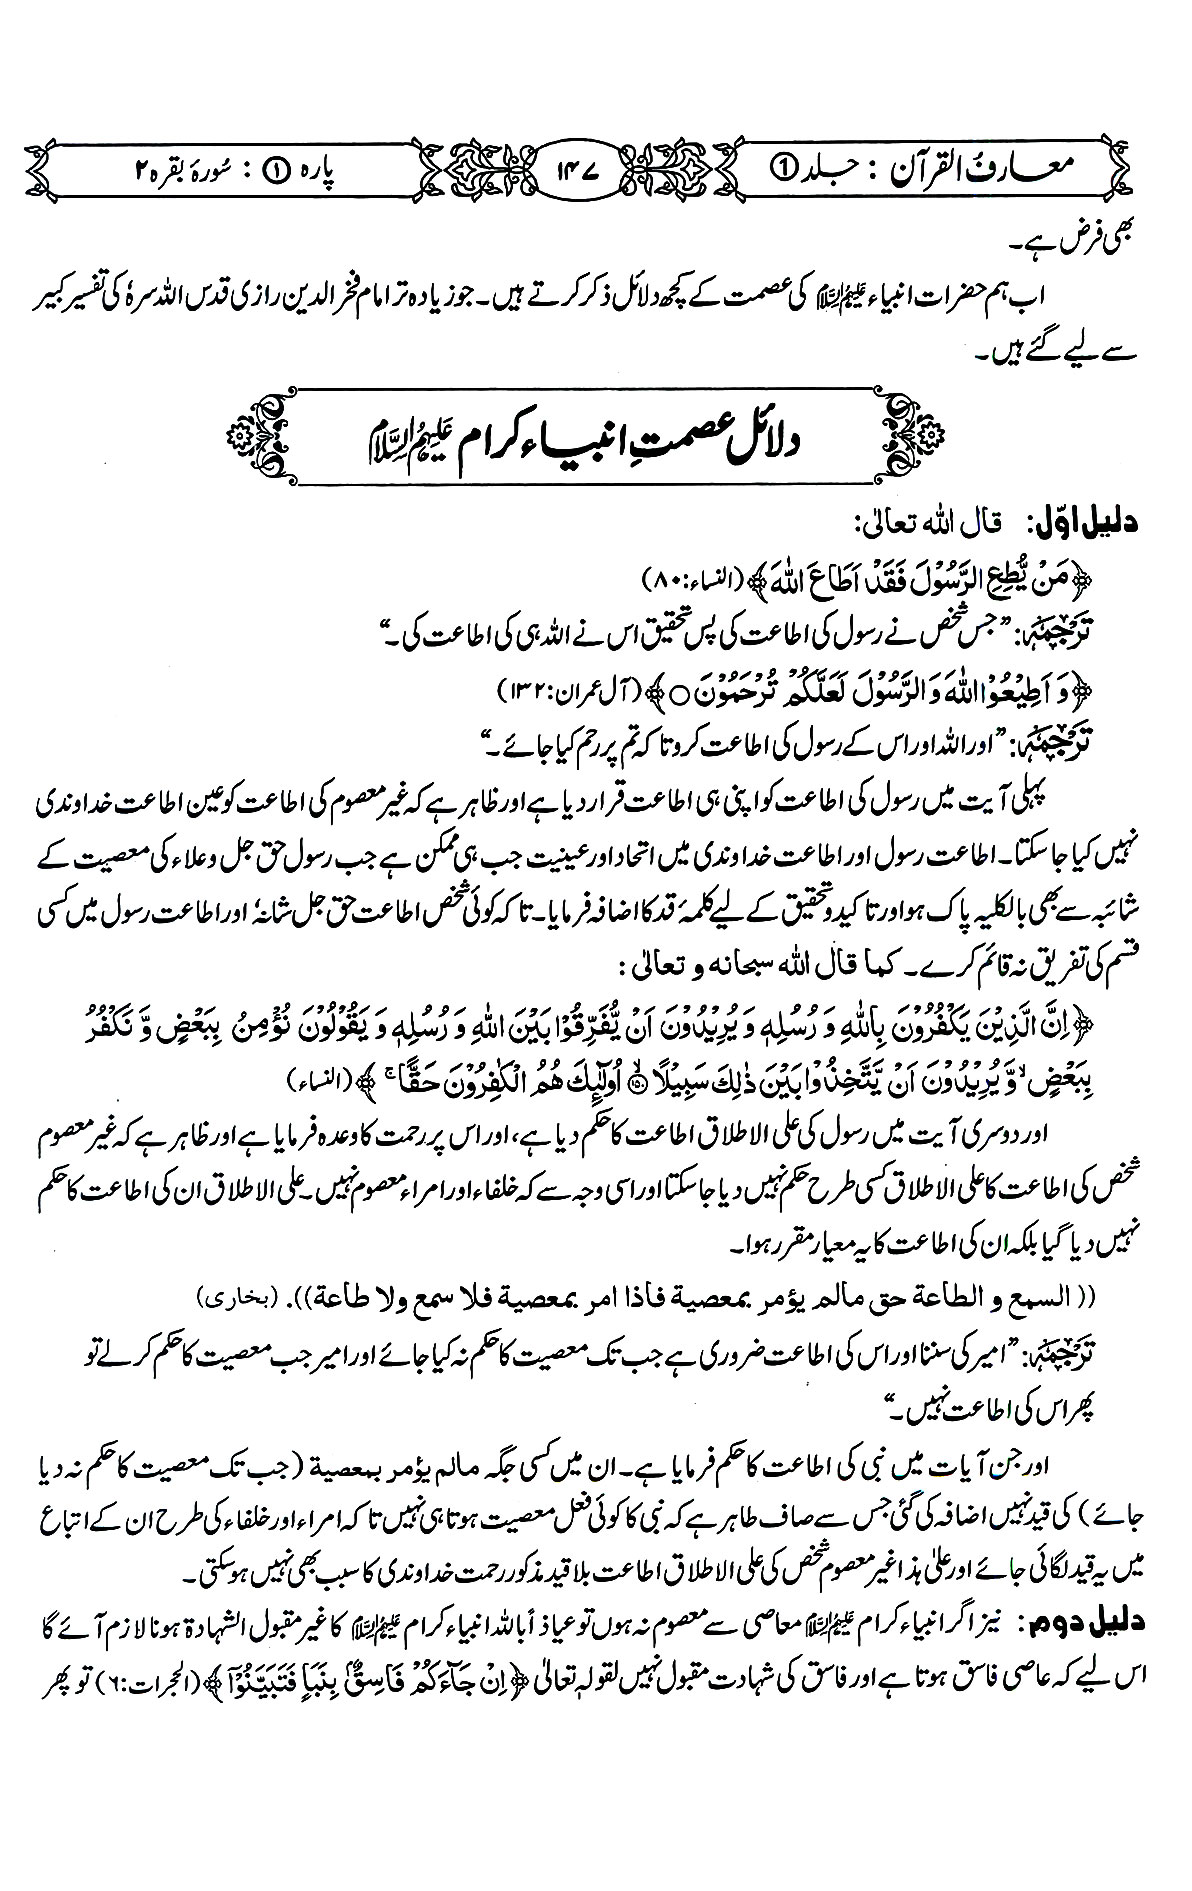 معارفُ القرآن : جلد ①
۱۴۷
پارہ ① : سُورۂ بقرہ ۲
بھی فرض ہے۔
اب ہم حضرات انبیاء علیہم السلام کی عصمت کے کچھ دلائل ذکر کرتے ہیں۔ جو زیادہ تر امام فخر الدین رازی قدس اللہ سرہٗ کی تفسیر کبیر
سے لیے گئے ہیں۔
دلائل عصمتِ انبیاء کرام علیہم السلام
دلیل اوّل: قال اللہ تعالیٰ:
﴿مَنْ یُّطِعِ الرَّسُوْلَ فَقَدْ اَطَاعَ اللّٰہَ﴾ (النساء:۸۰)
تَرْجَمَہٗ: ”جس شخص نے رسول کی اطاعت کی پس تحقیق اس نے اللہ ہی کی اطاعت کی۔“
﴿وَ اَطِیْعُوا اللّٰہَ وَ الرَّسُوْلَ لَعَلَّکُمْ تُرْحَمُوْنَ○﴾ (آل عمران:۱۳۲)
تَرْجَمَہٗ: ”اور اللہ اور اس کے رسول کی اطاعت کرو تاکہ تم پر رحم کیا جائے۔“
پہلی آیت میں رسول کی اطاعت کو اپنی ہی اطاعت قرار دیا ہے اور ظاہر ہے کہ غیر معصوم کی اطاعت کو عین اطاعت خداوندی
نہیں کیا جا سکتا۔ اطاعت رسول اور اطاعت خداوندی میں اتحاد اور عینیت جب ہی ممکن ہے جب رسول حق جل وعلاء کی معصیت کے
شائبہ سے بھی بالکلیہ پاک ہو اور تاکید و تحقیق کے لیے کلمۂ قد کا اضافہ فرمایا۔ تاکہ کوئی شخص اطاعت حق جل شانہٗ اور اطاعت رسول میں کسی
قسم کی تفریق نہ قائم کرے۔ کما قال اللہ سبحانه و تعالیٰ:
﴿اِنَّ الَّذِیْنَ یَکْفُرُوْنَ بِاللّٰہِ وَ رُسُلِہٖ وَ یُرِیْدُوْنَ اَنْ یُّفَرِّقُوْا بَیْنَ اللّٰہِ وَ رُسُلِہٖ وَ یَقُوْلُوْنَ نُؤْمِنُ بِبَعْضٍ وَّ نَکْفُرُ
بِبَعْضٍ ۙ وَّ یُرِیْدُوْنَ اَنْ یَّتَّخِذُوْا بَیْنَ ذٰلِکَ سَبِیْلًا ۙ﴿۱۵۰﴾ اُولٰٓئِکَ ھُمُ الْکٰفِرُوْنَ حَقًّا ۚ﴾ (النساء)
اور دوسری آیت میں رسول کی علی الاطلاق اطاعت کا حکم دیا ہے، اور اس پر رحمت کا وعدہ فرمایا ہے اور ظاہر ہے کہ غیر معصوم
شخص کی اطاعت کا علی الاطلاق کسی طرح حکم نہیں دیا جا سکتا اور اسی وجہ سے کہ خلفاء اور امراء معصوم نہیں۔ علی الاطلاق ان کی اطاعت کا حکم
نہیں دیا گیا بلکہ ان کی اطاعت کا یہ معیار مقرر ہوا۔
(( السمع و الطاعة حق مالم یؤمر بمعصیة فاذا امر بمعصیة فلا سمع ولا طاعة)). (بخاری)
تَرْجَمَہٗ: ”امیر کی سننا اور اس کی اطاعت ضروری ہے جب تک معصیت کا حکم نہ کیا جائے اور امیر جب معصیت کا حکم کرلے تو
پھر اس کی اطاعت نہیں۔“
اور جن آیات میں نبی کی اطاعت کا حکم فرمایا ہے۔ ان میں کسی جگہ مالم یؤمر بمعصیة (جب تک معصیت کا حکم نہ دیا
جائے) کی قید نہیں اضافہ کی گئی جس سے صاف ظاہر ہے کہ نبی کا کوئی فعل معصیت ہوتا ہی نہیں تاکہ امراء اور خلفاء کی طرح ان کے اتباع
میں یہ قید لگائی جائے اور علیٰ ہذا غیر معصوم شخص کی علی الاطلاق اطاعت بلا قید مذکور رحمت خداوندی کا سبب بھی نہیں ہو سکتی۔
دلیل دوم: نیز اگر انبیاء کرام علیہم السلام معاصی سے معصوم نہ ہوں تو عیاذ أباللہ انبیاء کرام علیہم السلام کا غیر مقبول الشہادة ہونا لازم آئے گا
اس لیے کہ عاصی فاسق ہوتا ہے اور فاسق کی شہادت مقبول نہیں لقولہ تعالیٰ ﴿اِنْ جَآءَکُمْ فَاسِقٌۢ بِنَبَاٍ فَتَبَیَّنُوْٓا﴾ (الحجرات:۶) تو پھر